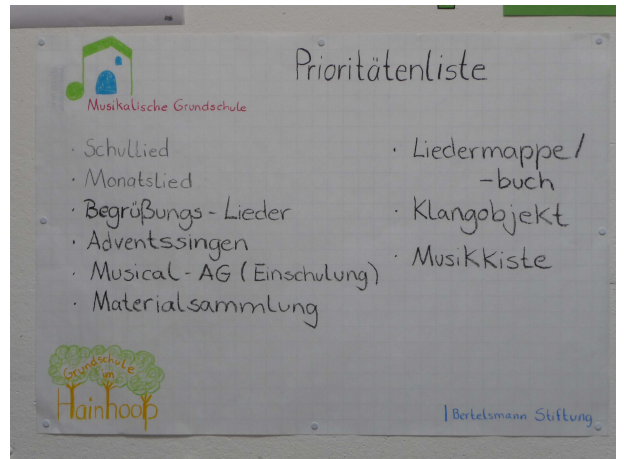 Prioritätenliste
Musikalische Grundschule
· Schullied
· Monatslied
· Begrüßungs - Lieder
· Adventssingen
· Musical - AG (Einschulung)
· Materialsammlung
· Liedermappe/
-buch
· Klangobjekt
· Musikkiste
Grundschule
im
Hainhoop
| Bertelsmann Stiftung